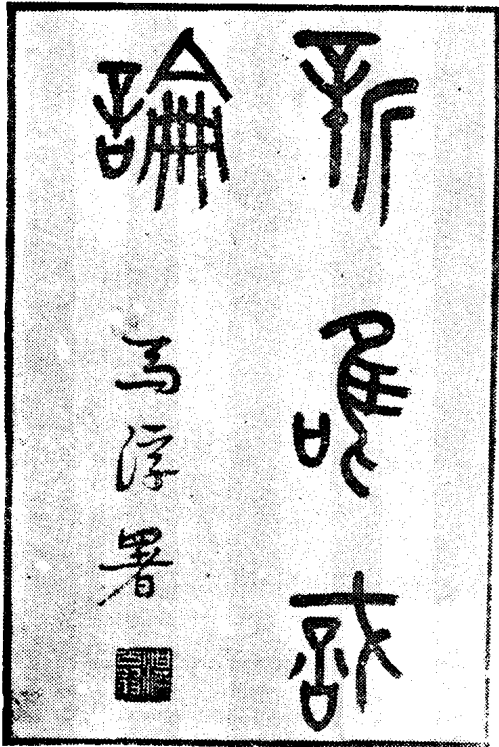 新唯識
論
馬浮署